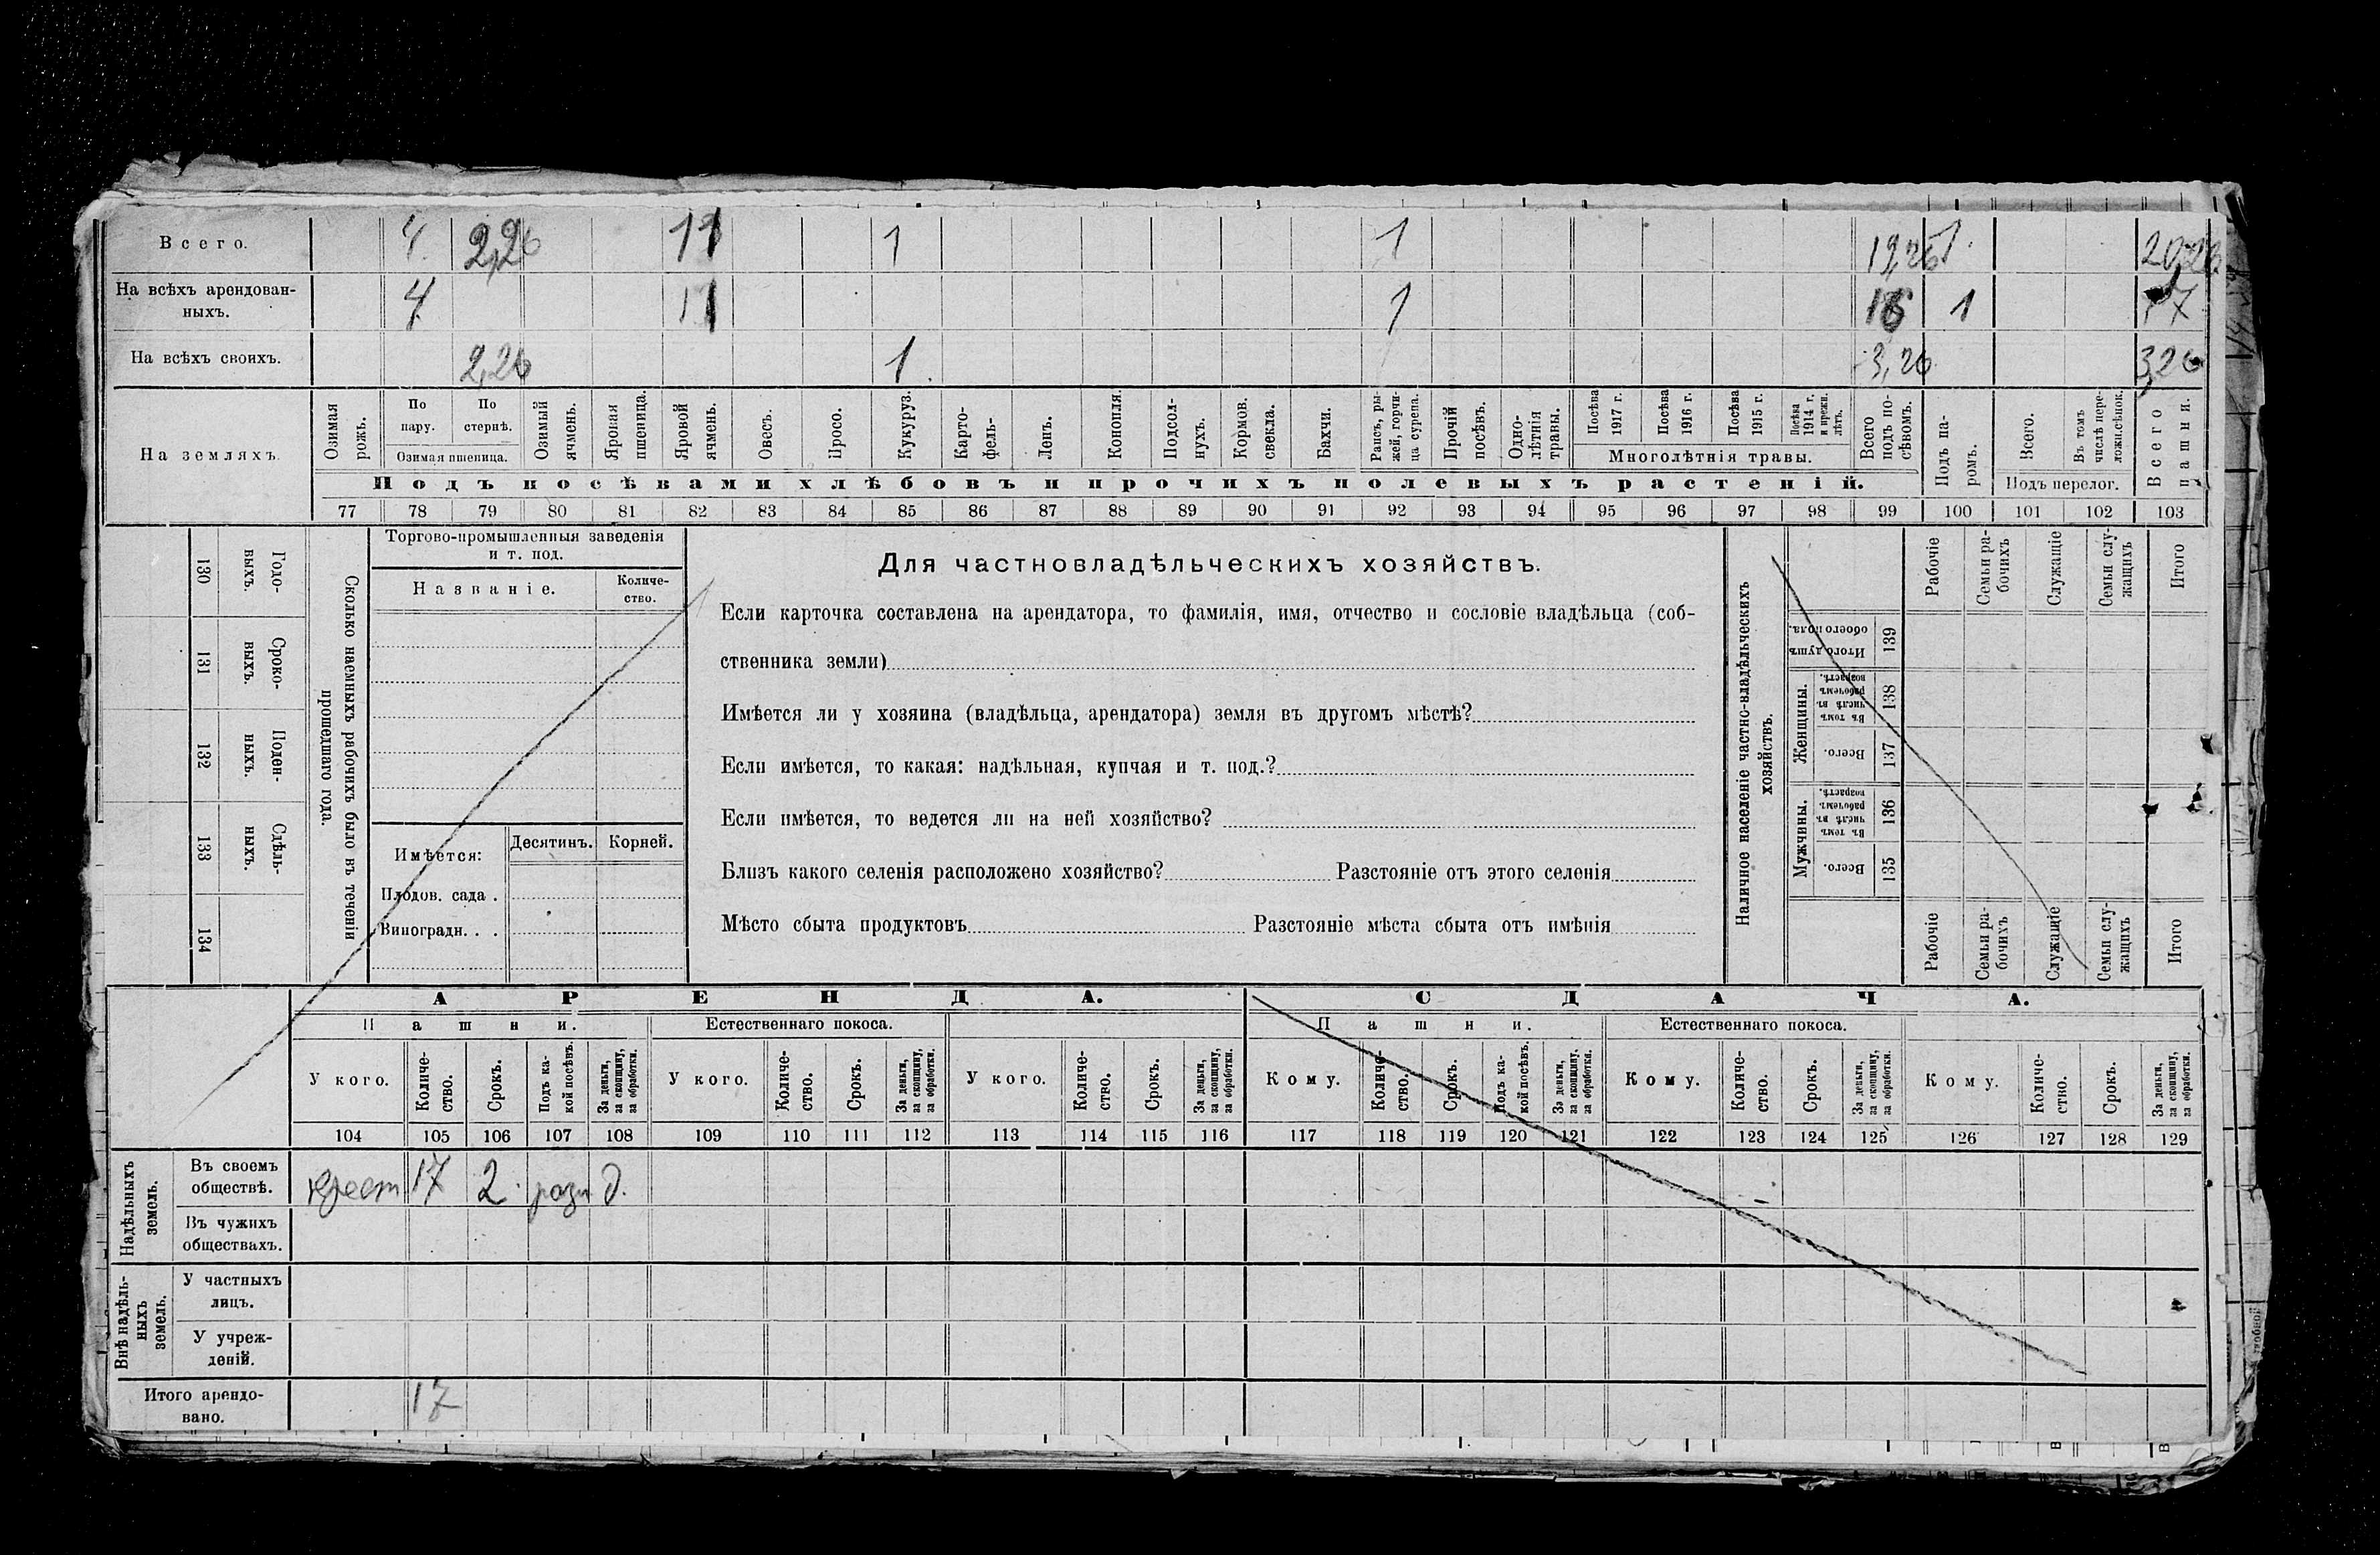 Всего. 4 2,26 11 1 1 19,26 1. 20,26
На всѣхъ арендован-
ныхъ. 4 11 1 16 1 17
На всѣхъ своихъ. 2,26 1. 3,26 3,26
На земляхъ.
Озимая рожь.
По пару.
По стернѣ.
Озимая пшеница.
Озимый ячмень.
Яровая пшеница.
Яровой ячмень.
Овесъ.
Просо.
Кукуруз.
Карто-
фель-
Ленъ.
Конопля.
Подсол-
нухъ.
Кормов.
свекла.
Бахчи.
Рапсъ, ры-
жей, горчи-
ца сурепа.
Прочій
посѣвъ.
Одно-
лѣтнія
травы.
Посѣва
1917 г.
Посѣва
1916 г.
Посѣва
1915 г.
Посѣва
1914 г.
и прежн.
лѣтъ.
Многолѣтнія травы.
Всего
подъ по-
сѣвомъ.
Подъ па-
ромъ.
Всего.
Въ томъ
числѣ пере-
ложн.сѣнок.
Подъ перелог.
Всего
пашни.
Подъ посѣвами хлѣбовъ и прочихъ полевыхъ растеній.
77 78 79 80 81 82 83 84 85 86 87 88 89 90 91 92 93 94 95 96 97 98 99 100 101 102 103
130 Годо-
выхъ.
131 Сроко-
ныхъ.
132 Поден-
ныхъ.
133 Сдѣль-
ныхъ.
134
Сколько наемныхъ рабочихъ было въ теченіи
прошедшаго года.
Торгово-промышленныя заведенія
и т. под.
Названіе.
Количе-
ство.
Имѣется:
Десятинъ. Корней.
Плодов. сада .
Виноградн. . .
Для частновладѣльческихъ хозяйствъ.
Если карточка составлена на арендатора, то фамилія, имя, отчество и сословіе владѣльца (соб-
ственника земли)
Имѣется ли у хозяина (владѣльца, арендатора) земля въ другомъ мѣстѣ?
Если имѣется, то какая: надѣльная, купчая и т. под.?
Если имѣется, то ведется ли на ней хозяйство?
Близъ какого селенія расположено хозяйство? Разстояніе отъ этого селенія
Мѣсто сбыта продуктовъ Разстояніе мѣста сбыта отъ имѣнія
Наличное населеніе частно-владѣльческихъ
хозяйствъ.
Рабочіе
Семьи ра-
бочихъ
Служащіе
Семьи слу-
жащихъ
Итого
Итого душъ
обоего пола.
139
Женщины.
Въ томъ
числѣ въ
рабочемъ
возрастѣ.
138
Всего.
137
Мужчины.
Въ томъ
числѣ въ
рабочемъ
возрастѣ.
136
Всего.
135
Рабочіе
Семьи ра-
бочихъ
Служащіе
Семьи слу-
жащихъ
Итого
АРЕНДА. СДАЧА.
Пашни. Естественнаго покоса. Пашни. Естественнаго покоса.
У кого.
Количе-
ство.
Срокъ.
Подъ ка-
кой посѣвъ.
За деньги,
за скопщину,
за обработки.
У кого.
Количе-
ство.
Срокъ.
За деньги,
за скопщину,
за обработки.
У кого.
Количе-
ство.
Срокъ.
За деньги,
за скопщину,
за обработки.
Кому.
Количе-
ство.
Срокъ.
Подъ ка-
кой посѣвъ.
За деньги,
за скопщину,
за обработки.
Кому.
Количе-
ство.
Срокъ.
За деньги,
за скопщину,
за обработки.
Кому.
Количе-
ство.
Срокъ.
За деньги,
за скопщину,
за обработки.
104 105 106 107 108 109 110 111 112 113 114 115 116 117 118 119 120 121 122 123 124 125 126 127 128 129
Надѣльныхъ
земель.
Въ своемъ
обществѣ. крест 17 2. разн д.
Въ чужихъ
обществахъ.
Внѣ надѣль-
ныхъ
земель.
У частныхъ
лицъ.
У учреж-
деній.
Итого арендо-
вано. 17